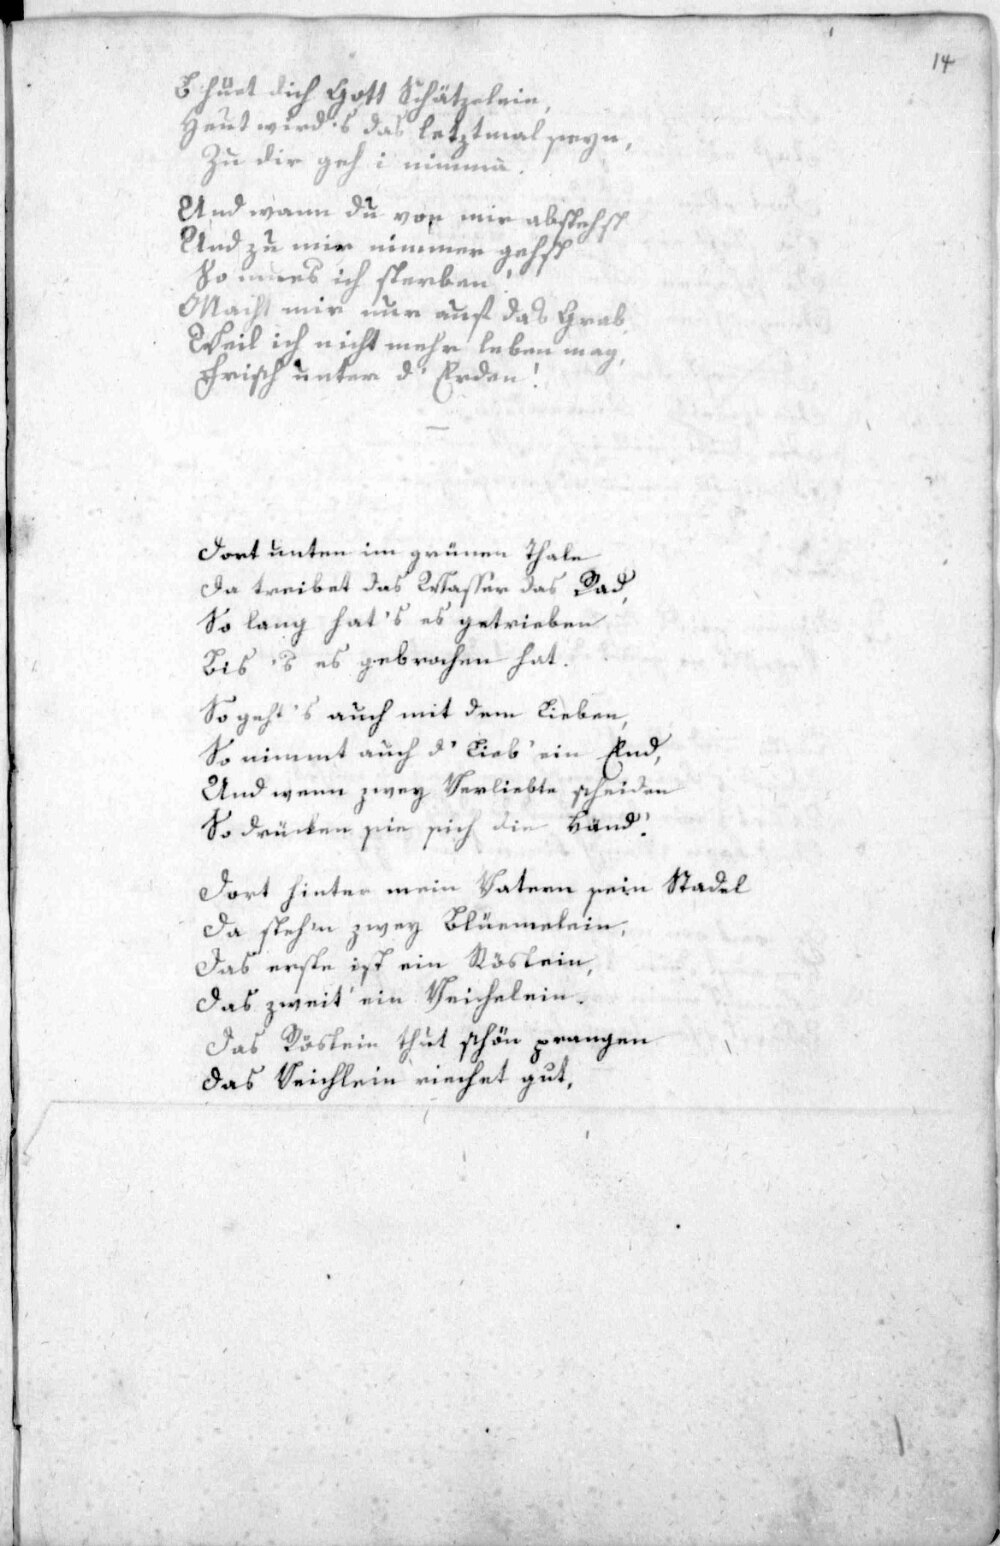 14
B'hüet dich Gott Schätzelein,
Heut wird's das letztmal seyn,
Zu dir geh i nimma.
Und wann du von mir abstehst
Und zu mir nimmer gehst
So mues ich sterben!
Macht mir nur auf das Grab
Weil ich nicht mehr leben mag,
Frisch unter d' Erden!
Dort unten im grünen Thale
Da treibet das Wasser das Rad,
So lang hat's es getrieben
Bis 's es gebrochen hat.
So geht's auch mit dem Lieben,
So nimmt auch d' Lieb' ein End,
Und wenn zwey Verliebte scheiden
So drücken sie sich die Händ'.
Dort hinter mein Vatern sein Stadel
Da steh'n zwey Blüemelein,
Das erste ist ein Röslein,
Das zweit' ein Veichelein.
Das Röslein thut schön prangen
Das Veichlein riechet gut,